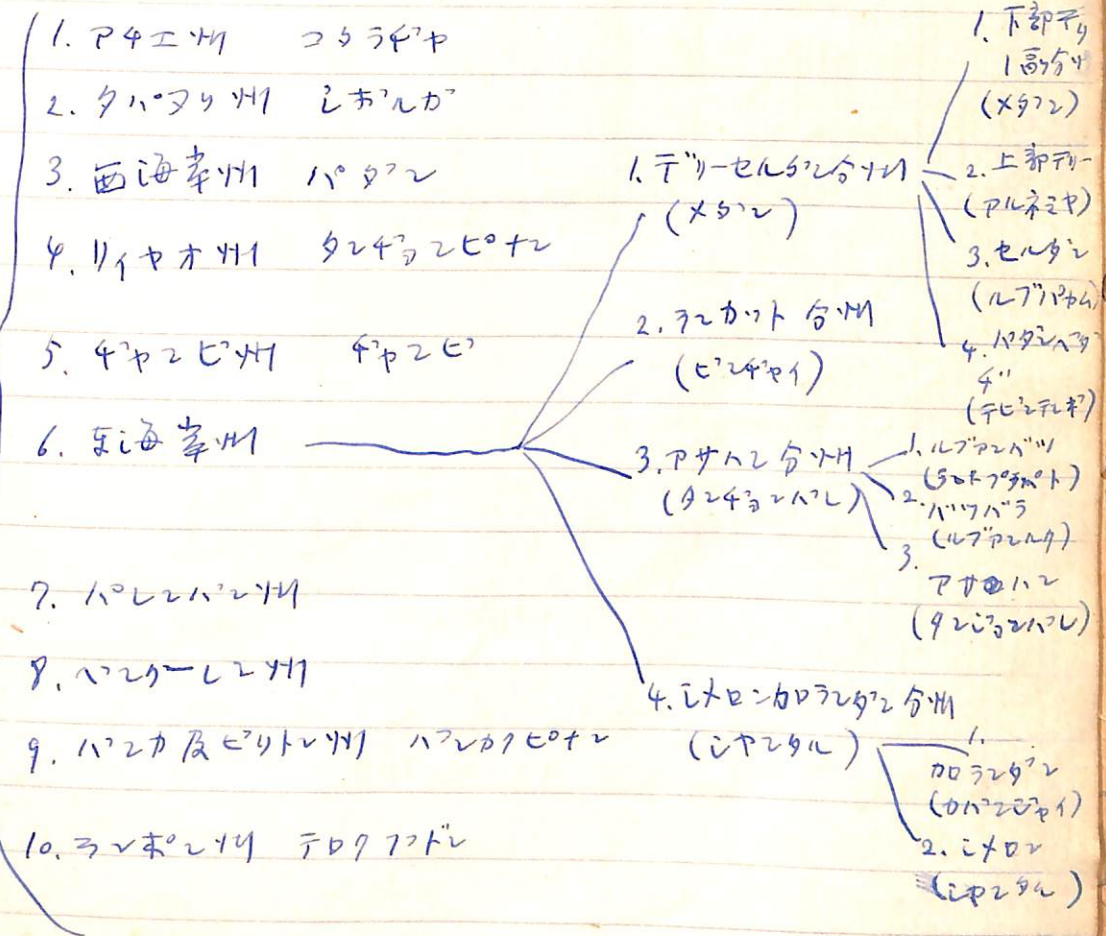 1. アチエ州 コタラヂャ
2. タパヌリ州 シボルガ
3. 西海岸州 パダン
4. リイヤオ州 タンヂョンピナン
5. ヂャンビ州 ヂャンビ
6. 東海岸州
7. パレンバン州
8. ベンクーレン州
9. バンカ及ビリトン州 パンカクピナン
10. ランポン州 テロクブドン
1. デリーセルダン分州
(メダン)
2. ランカット分州
(ビンヂャイ)
3. アサハン分州
(タンヂョンバレ)
4. シメロンカロランダン分州
(シヤンタル)
1. 下部デリ
(メダン)
2. 上部デリー
(アルネミヤ)
3. セルダン
(ルブパカム)
4. パダンベダ
ギ
(テビンテンギ)
1. ルブアンバツ
2. バツバラ
(ルブアンルク)
3.
アサハン
(タンジョンバレ)
1.
カロランダン
(カバンジャイ)
2. シメロン
(シヤンタル)